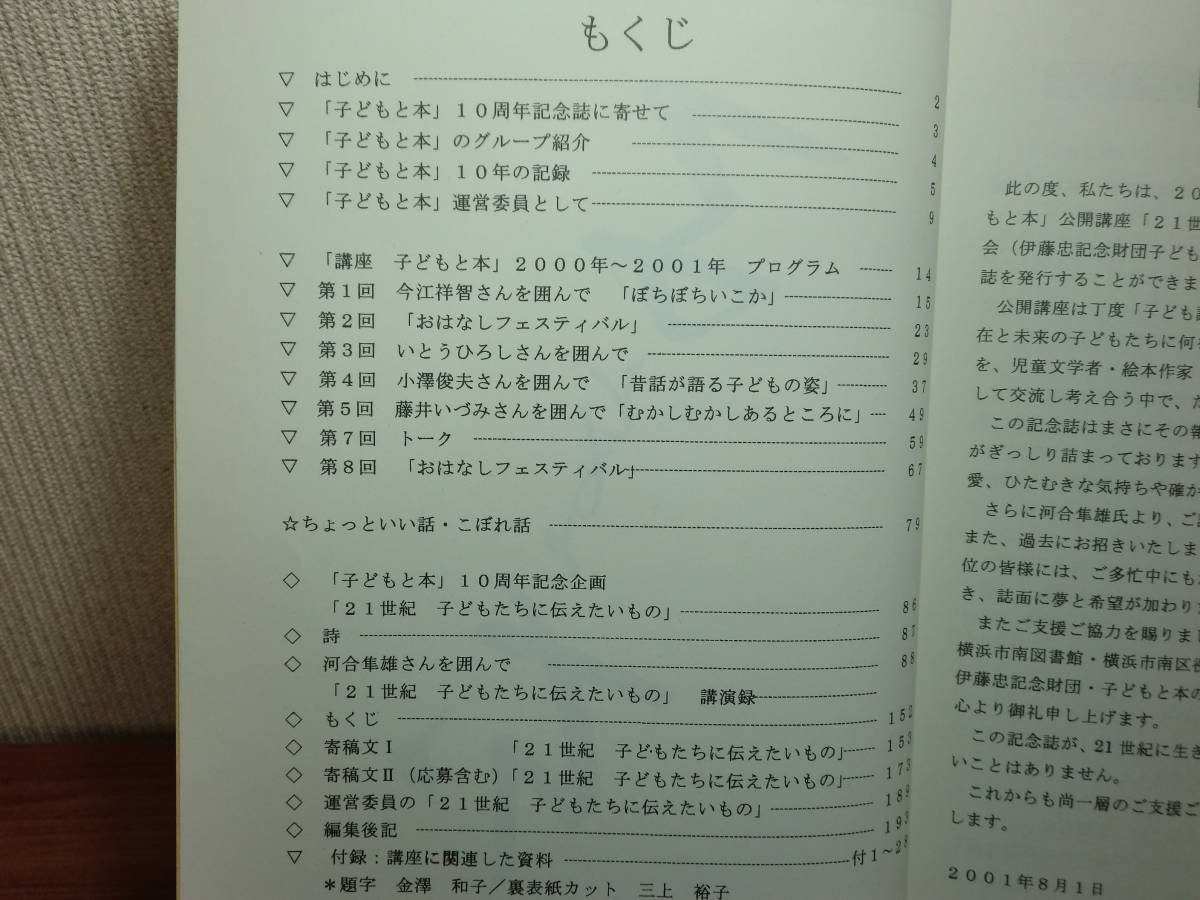 もくじ
▽ はじめに 2
▽ 「子どもと本」10周年記念誌に寄せて 3
▽ 「子どもと本」のグループ紹介 4
▽ 「子どもと本」10年の記録 5
▽ 「子どもと本」運営委員として 9
▽ 「講座 子どもと本」2000年~2001年 プログラム 14
▽ 第1回 今江祥智さんを囲んで 「ぼちぼちいこか」 15
▽ 第2回 「おはなしフェスティバル」 23
▽ 第3回 いとうひろしさんを囲んで 29
▽ 第4回 小澤俊夫さんを囲んで 「昔話が語る子どもの姿」 37
▽ 第5回 藤井いづみさんを囲んで「むかしむかしあるところに」 49
▽ 第7回 トーク 59
▽ 第8回 「おはなしフェスティバル」 67
☆ちょっといい話・こぼれ話 79
◇ 「子どもと本」10周年記念企画
「21世紀 子どもたちに伝えたいもの」 86
◇ 詩 87
◇ 河合隼雄さんを囲んで 88
「21世紀 子どもたちに伝えたいもの」 講演録
◇ もくじ 152
◇ 寄稿文Ⅰ 「21世紀 子どもたちに伝えたいもの」 153
◇ 寄稿文Ⅱ(応募含む)「21世紀 子どもたちに伝えたいもの」 173
◇ 運営委員の「21世紀 子どもたちに伝えたいもの」 189
◇ 編集後記 193
▽ 付録:講座に関連した資料 付1~28
*題字 金澤 和子/裏表紙カット 三上 裕子
此の度、私たちは、20
もと本」公開講座「21世
会(伊藤忠記念財団子ども
誌を発行することができま
公開講座は丁度「子ども
在と未来の子どもたちに何
を、児童文学者・絵本作家
して交流し考え合う中で、た
この記念誌はまさにその報
がぎっしり詰まっております
愛、ひたむきな気持ちや確か
さらに河合隼雄氏より、ご
また、過去にお招きいたしま
位の皆様には、ご多忙中にも
き、誌面に夢と希望が加わりた
またご支援ご協力を賜りまし
横浜市南図書館・横浜市南区
伊藤忠記念財団・子どもと本の
心より御礼申し上げます。
この記念誌が、21世紀に生き
いことはありません。
これからも尚一層のご支援ご
します。
2001年8月1日